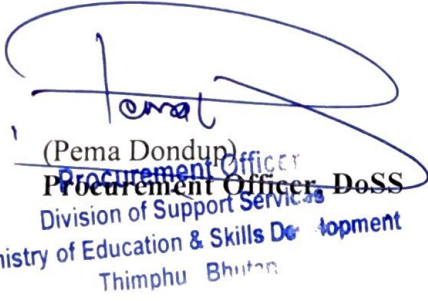 Pema
(Pema Dondup)
Procurement Officer
Procurement Officer, DoSS
Division of Support Services
nistry of Education & Skills De lopment
Thimphu Bhutan